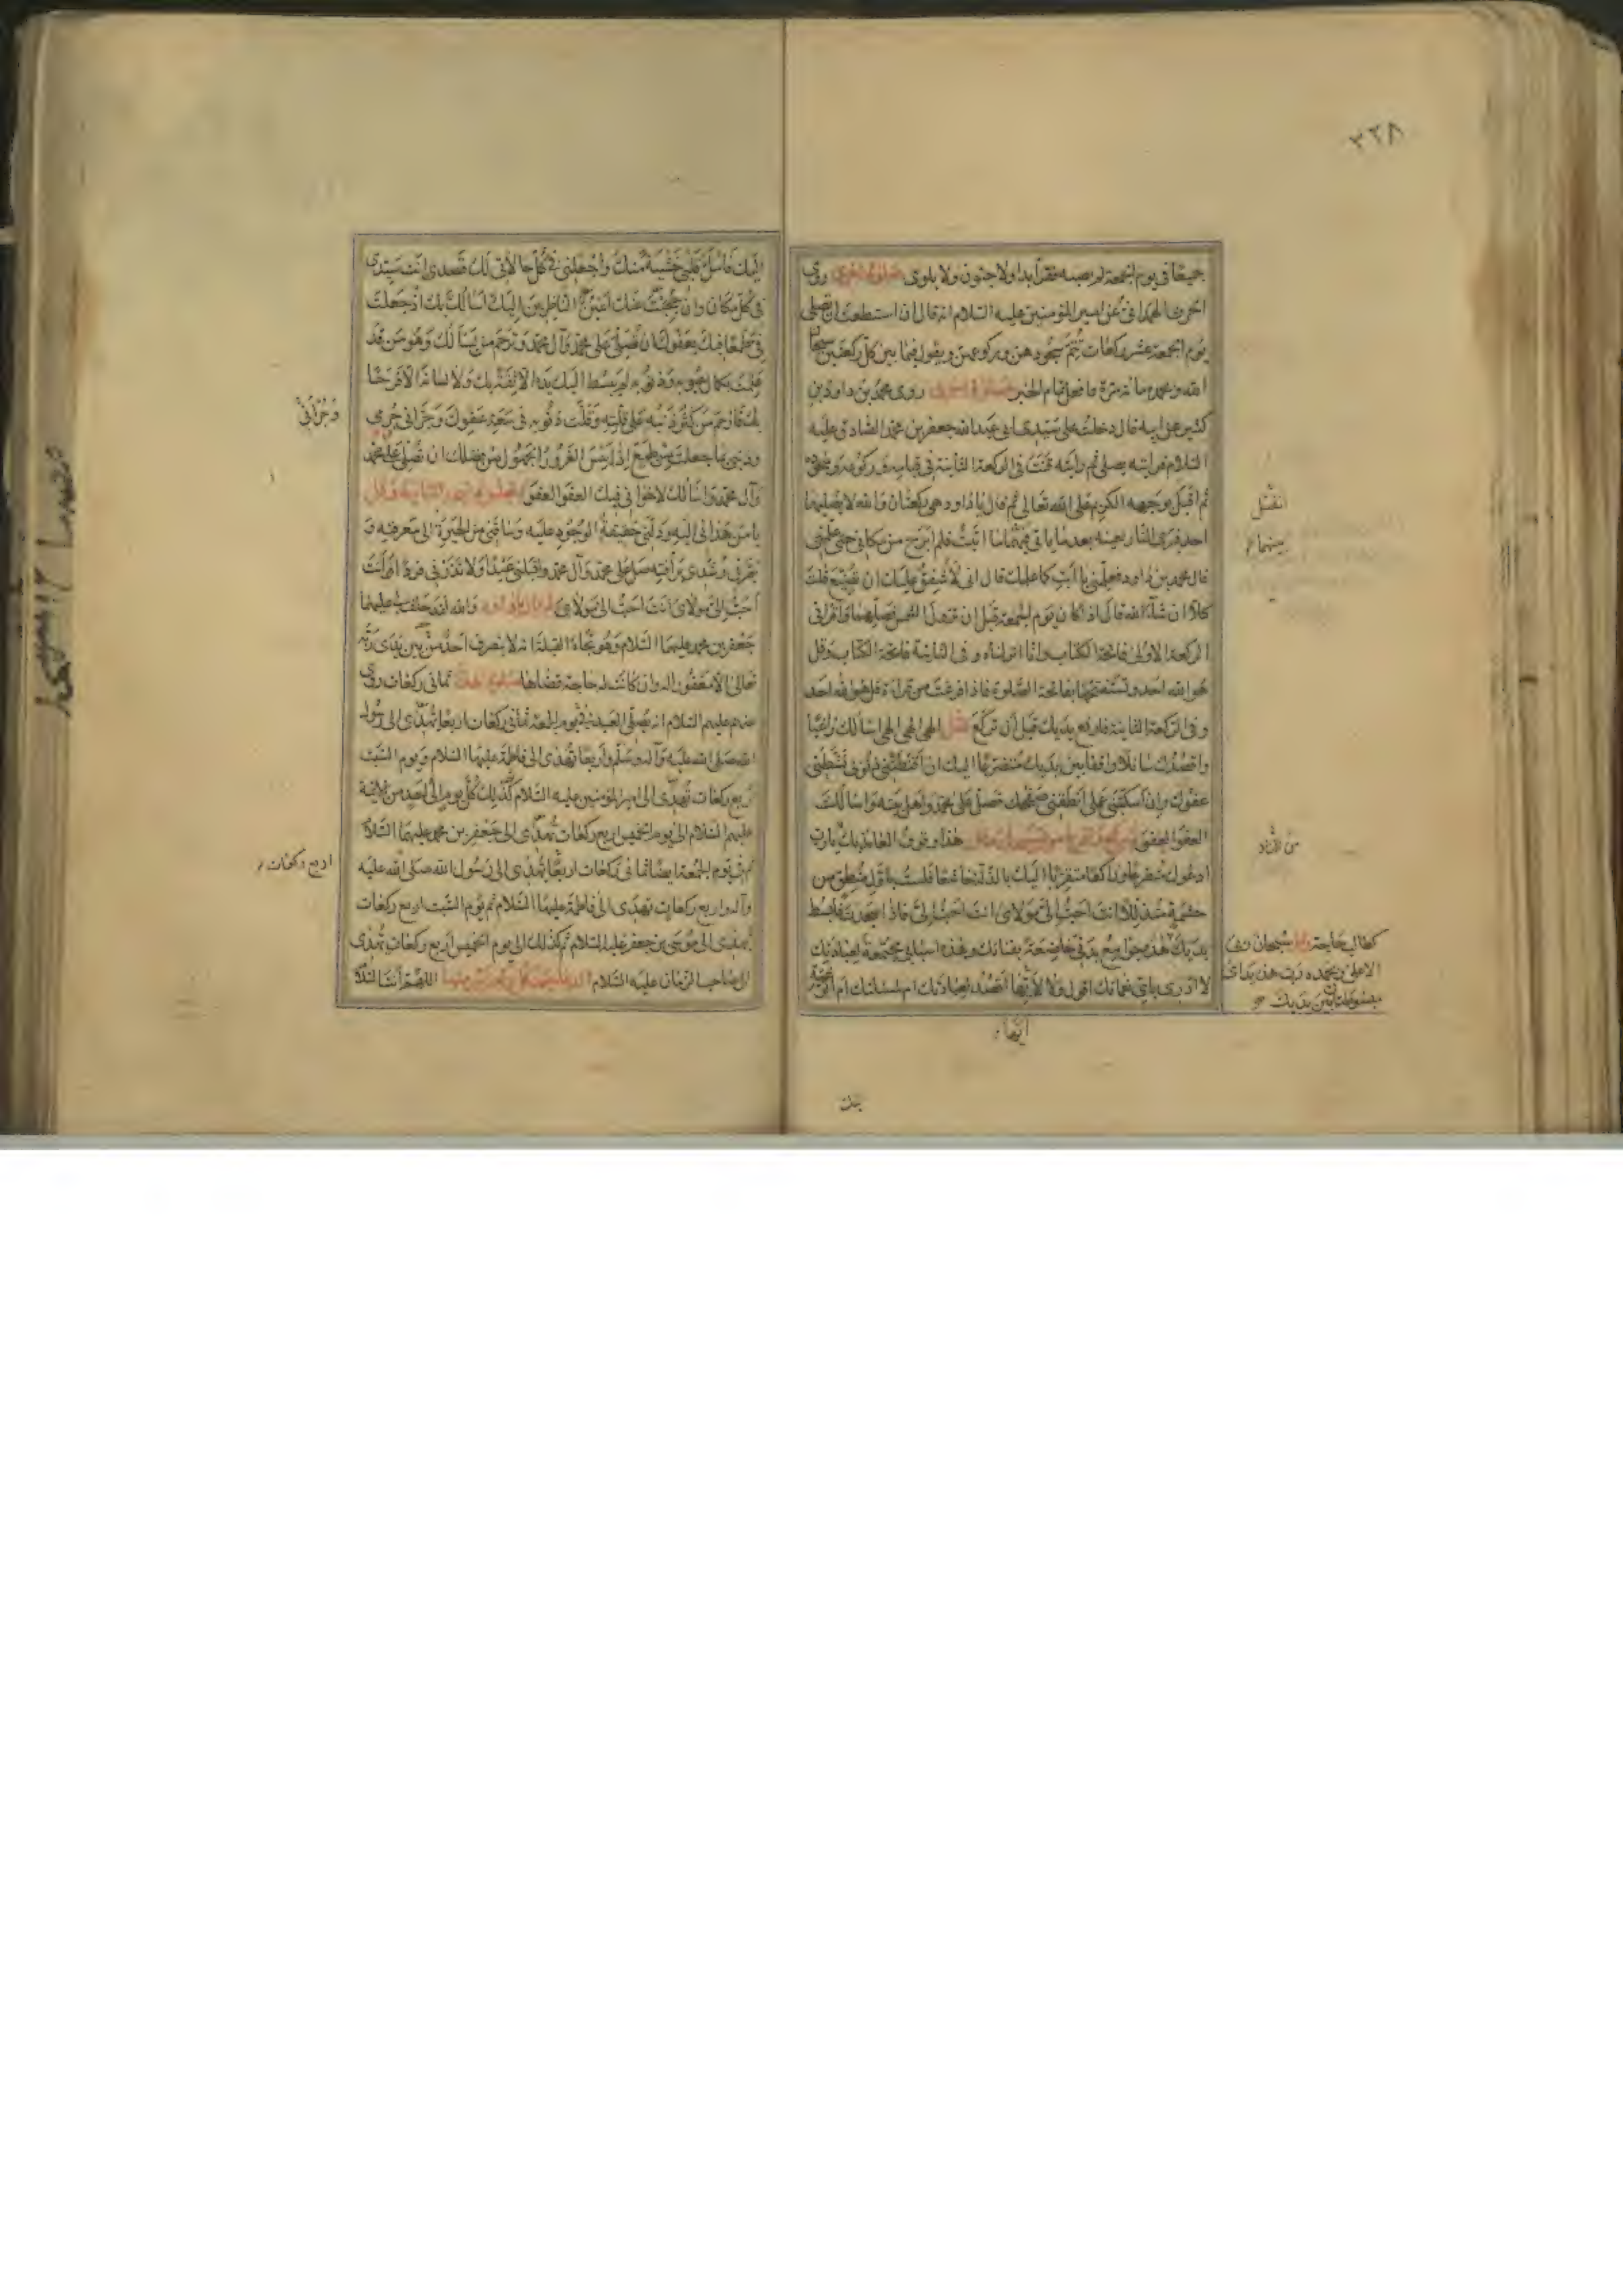 ٢٣٨
جميعا في يوم الجمعة لم يصبه فقر أبدا ولا جنون ولا بلوى صلوة اخرى روى
الحرث الهمداني عن امير المؤمنين عليه السلام انه قال ان استطعت ان تصلي
يوم الجمعة عشر ركعات تتم سجودهن وركوعهن وتقول فيما بين كل ركعتين سبحان
الله وبحمده مائة مرة فافعل تمام الخبر صلوة اخرى روى محمد بن داود بن
كثير عن ابيه قال دخلت على سيدي ابي عبد الله جعفر بن محمد الصادق عليه
السلام فرايته يصلي ثم رايته قنت في الركعة الثانية في قيامه وركوعه وسجوده
ثم اقبل بوجهه الكريم على الله تعالى ثم قال يا داود هي ركعتان والله لا يصليهما
احد فيرى النار بعينه بعد ما ياتي فيهما ما اتيت فلم ابرح من مكاني حتى علمني
قال محمد بن داود فعلمني يا ابت كما علمك قال اني لأشفق عليك ان تضيع قلت
كلا ان شاء الله قال اذا كان يوم الجمعة قبل ان تزول الشمس فصلهما واقرأ في
الركعة الاولى فاتحة الكتاب وانا انزلناه وفي الثانية فاتحة الكتاب وقل
هو الله احد وتستفتحهما بفاتحة الصلوة فاذا فرغت من قراءة قل هو الله احد
وفي الركعة الثانية فارفع يديك قبل ان تركع وقل الهي الهي الهي اسالك راغبا
واقصدك سائلا واقفا بين يديك متضرعا اليك ان اقنطتني ذنوبي نشطني
عفوك وان اسكتني عملي انطقني صفحك فصل على محمد واهل بيته واسالك
العفو العفو هذا وقوف العائذ بك يارب
ادعوك متضرعا وراكعا متقربا اليك بالذلة خاشعا فلست باول منطق من
حشمة متذللا انت احب الي مولاي انت احب الي مولاي فاذا سجدت فابسط
يديك
لا ادري باي نعمائك اقول ولا لايها اقصد لعبادتك ام لمسئلتك ام الرغبة
انفتل
بينهما
كطالب حاجة وقل سبحان ربي
الاعلى وبحمده رب هذه يداي
مبسوطتان بين يديك
ايها
اليك فاملأ قلبي خشية منك واجعلني في كل حالاتي لك قصدي انت سيدي
في كل مكان وان حجبت عنك اعين الناظرين اليك اسالك بك اذ جعلت
في طمعا فيك بعفوك ان تصلي على محمد وآل محمد وترحم من يسألك وهو من قد
علمت بكمال عيوبه وذنوبه لم يبسط اليك يده الا ثقة بك ولا لسانه الا فرحا
بك فارحم من كثر ذنبه على قلته وقلت ذنوبه في سعة عفوك وجرأني جرمي
وذنبي بما جعلت من طمع اذا يئس الغرور الجهول من فضلك ان تصلي على محمد
وآل محمد واسالك لاخواني فيك العفو العفو ثم تجلس ثم تسجد الثانية وقل
يا من هداني اليه ودلني حقيقة الوجود عليه وساقني من الحيرة الى معرفته و
بصرني رشدي برأفته صل على محمد وآل محمد واقبلني عبدا ولا تذرني فردا انت
احب الي مولاي انت احب الي مولاي ثم قال داود والله لقد حلف لي عليهما
جعفر بن محمد عليهما السلام وهو تجاه القبلة انه لا ينصرف احد من بين يدي ربه
تعالى الا مغفورا له وان كانت له حاجة قضاها صلوة هدية ثماني ركعات روي
عنهم عليهم السلام انه يصلي العبد في يوم الجمعة ثماني ركعات اربعا تهدى الى رسول
الله صلى الله عليه وآله وسلم واربعا تهدى الى فاطمة عليها السلام ويوم السبت
اربع ركعات تهدى الى امير المؤمنين عليه السلام كذلك كل يوم الى احد من الائمة
عليهم السلام الى يوم الخميس اربع ركعات تهدى الى جعفر بن محمد عليهما السلام
ثم في يوم الجمعة ايضا ثماني ركعات اربعا تهدى الى رسول الله صلى الله عليه
وآله واربع ركعات تهدى الى فاطمة عليها السلام ثم يوم السبت اربع ركعات
تهدى الى موسى بن جعفر عليه السلام ثم كذلك الى يوم الخميس اربع ركعات تهدى
الى صاحب الزمان عليه السلام الدعاء بين كل ركعتين منها اللهم انت السلام
وجرأني
اربع ركعات